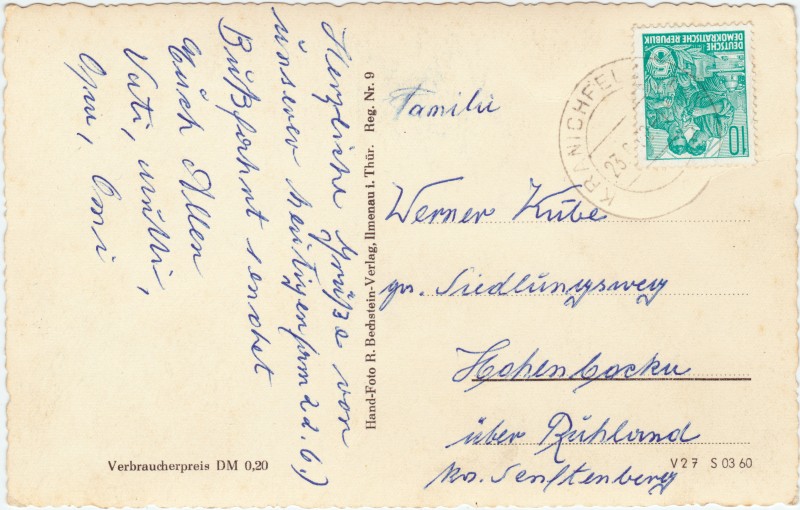 Herzliche Grüße von
unserer heutigen (am 22.6.)
Bußfahrt sendet
Euch Allen
Vati, Mutti,
Opa, Omi
Hand-Foto R. Bechstein-Verlag, Ilmenau i. Thür. Reg. Nr. 9
Verbraucherpreis DM 0,20
DEUTSCHE
DEMOKRATISCHE REPUBLIK
10
KRANICHFEL
23.
Familie
Werner Kube
gr. Siedlungsweg
Hohenbocka
über Ruhland
Krs. Senftenberg
V 2 7 S 03 60